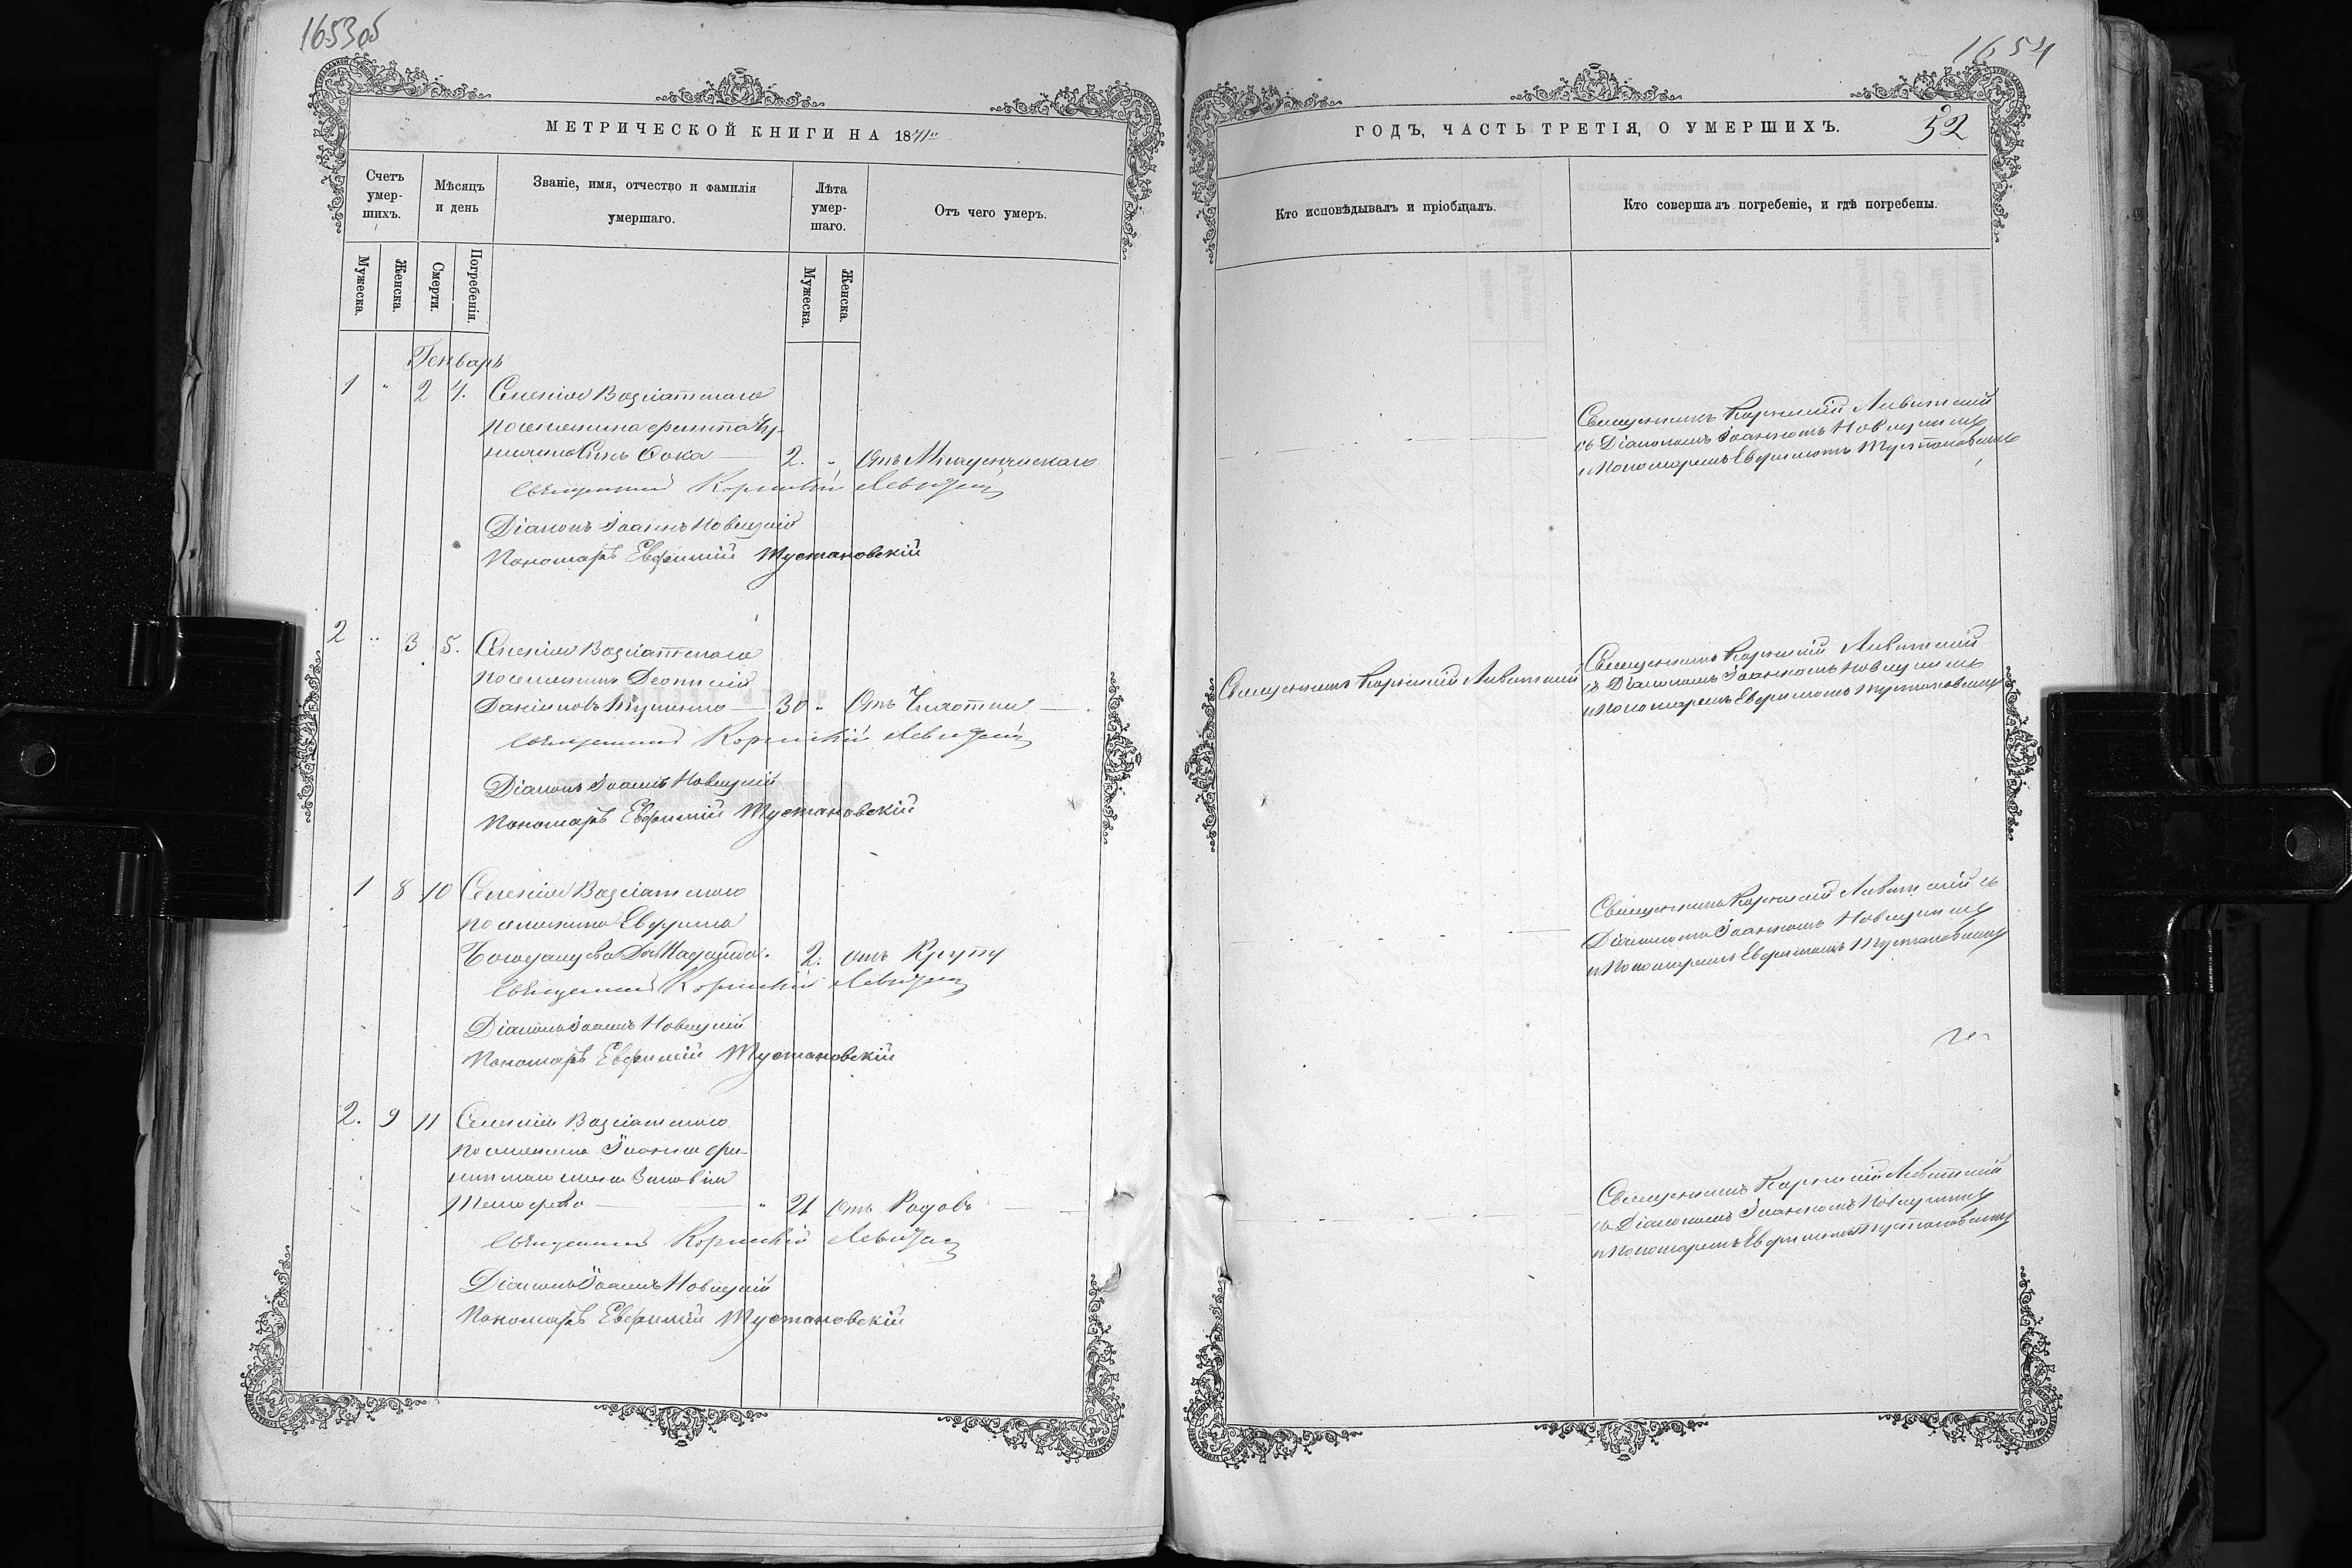 1653об
МЕТРИЧЕСКОЙ КНИГИ НА 1871й
Счетъ умер-шихъ.
Мѣсяцъ и день
Званіе, имя, отчество и фамилія умершаго.
Лѣта умер-шаго.
Отъ чего умеръ.
Мужеска.
Женска.
Смерти.
Погребенія.
Мужеска.
Женска.
Генварь
1 " 2 4. Селенія
поселянина
Сынъ Фока 2. " Отъ
Священникъ Корнилій Левицкій
Діаконъ Іоаннъ Новицкій
Пономарь Евфимій Тустановскій
2 " 3 5. Селенія
поселянинъ Леонтій
Даніиловъ 30 " Отъ Чахотки
Священникъ Корнилій Левицкій
Діаконъ Іоаннъ Новицкій
Пономарь Евфимій Тустановскій
1 8 10 Селенія
поселянина
2. отъ Крупу
Священникъ Корнилій Левицкій
Діаконъ Іоаннъ Новицкій
Пономарь Евфимій Тустановскій
2. 9 11 Селенія
поселянина Іоанна
жена Зиновія
" 21 Отъ Родовъ
Священникъ Корнилій Левицкій
Діаконъ Іоаннъ Новицкій
Пономарь Евфимій Тустановскій
1654
ГОДЪ, ЧАСТЬ ТРЕТІЯ, О УМЕРШИХЪ.
52
Кто исповѣдывалъ и пріобщалъ.
Кто совершалъ погребеніе, и гдѣ погребены.
Священникъ Корнилій Левитскій
съ Діакономъ Іоанномъ Новицкимъ
и Пономаремъ Евфимомъ Тустановскимъ
Священникъ Корнилій Левитскій
Священникъ Корнилій Левитскій
съ Діакономъ Іоанномъ Новицкимъ
и Пономаремъ Евфимомъ Тустановскимъ
Священникъ Корнилій Левитскій съ
Діакономъ Іоанномъ Новицкимъ
и Пономаремъ Евфимомъ Тустановскимъ
Священникъ Корнилій Левитскій
съ Діакономъ Іоанномъ Новицкимъ
и Пономаремъ Евфимомъ Тустановскимъ